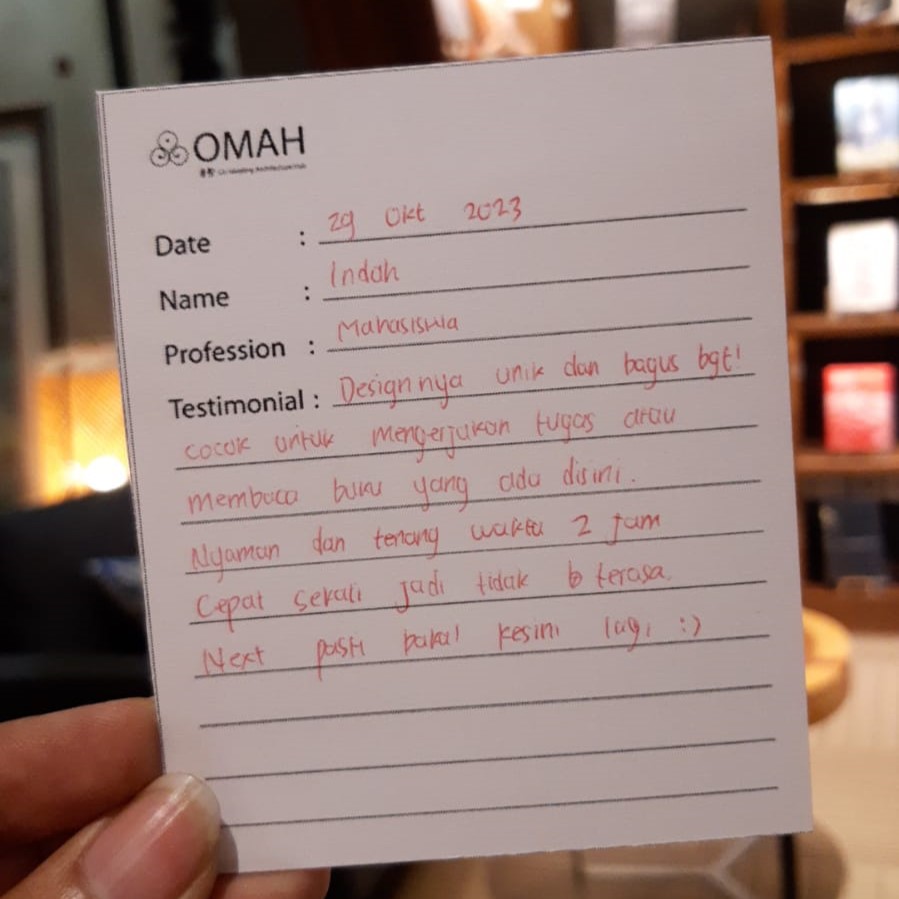 OMAH
Date : 29 Okt 2023
Name : Indah
Profession : Mahasiswa
Testimonial : Designnya unik dan bagus bgt!
cocok untuk mengerjakan tugas atau
membaca buku yang ada disini.
Nyaman dan tenang waktu 2 jam
Cepat sekali jadi tidak b terasa.
Next pasti bakal kesini lagi :)